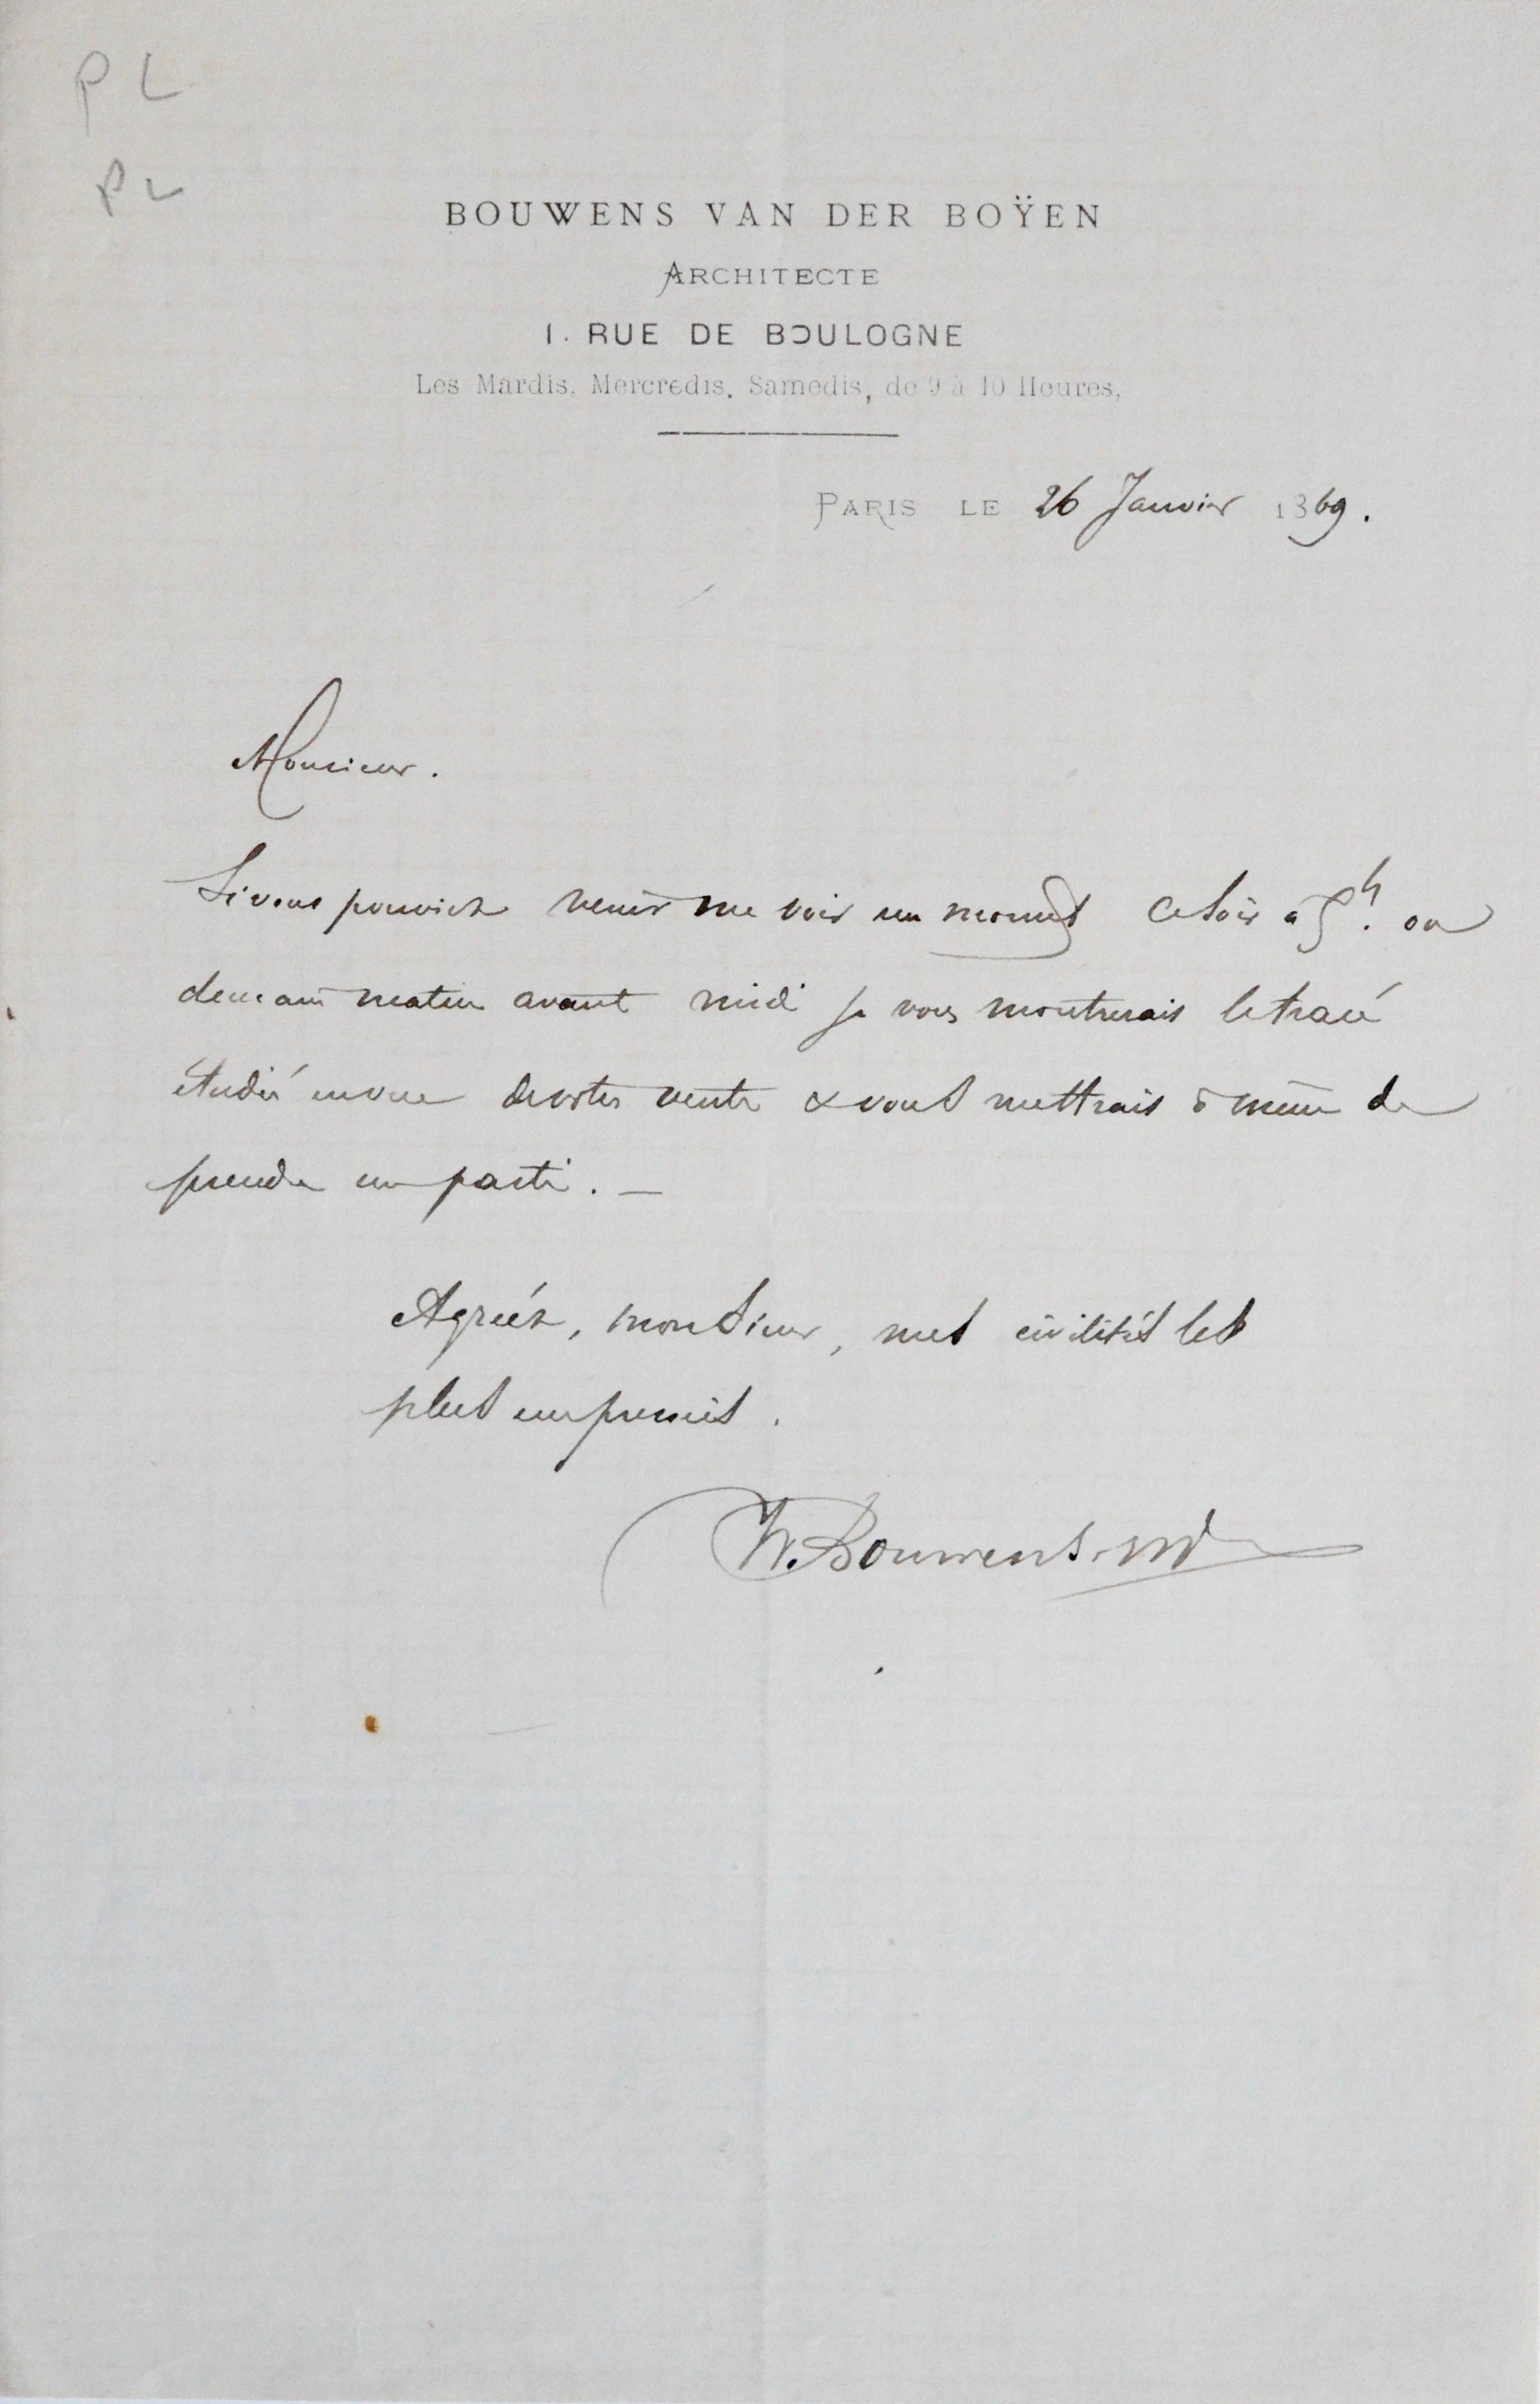 PL
PL
BOUWENS VAN DER BOŸEN
ARCHITECTE
1. RUE DE BOULOGNE
Les Mardis. Mercredis. Samedis, de 9 à 10 Heures,
PARIS LE 26 Janvier 1869.
Monsieur.
Si vous pouviez venir me voir un moment ce soir à 5h. ou
demain matin avant midi je vous montrerais le tracé
étudié en vue de votre vente & vous mettrais à même de
prendre un parti. —
Agréez, monsieur, mes civilités les
plus empressées.
W. Bouwens